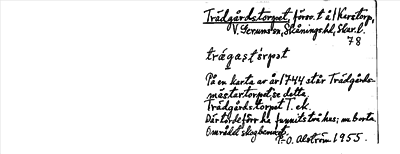 Trädgårdstorpet, försv. t å! Karstorp,
V. Gerumson, Skånings hd, Skar. l.
78
trægastórpət
På en karta av år 1744 står Trädgårds-
mästartorpet, se detta.
Trädgårdstorpet T. ek.
Där torde förr ha funnits två hus; nu borta.
Området skogbevuxet.
P-O. Alström 1955.